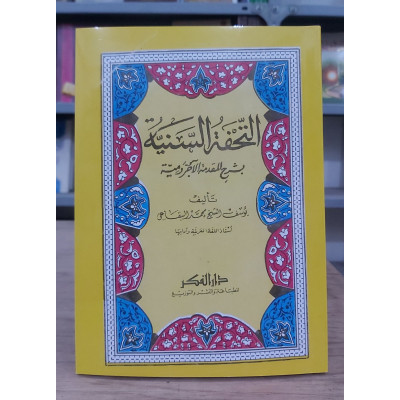 التحفة السنية
بشرح المقدمة الآجرومية
تأليف
يوسف الشيخ محمد البقاعي
أستاذ اللغة العربية وآدابها
دار الفكر
للطباعة والنشر والتوزيع